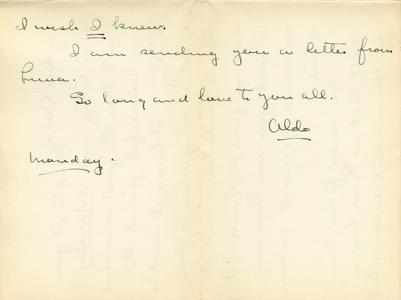 I wish I knew.
I am sending you a letter from
Luna.
So long and love to you all.
Aldo
Monday.